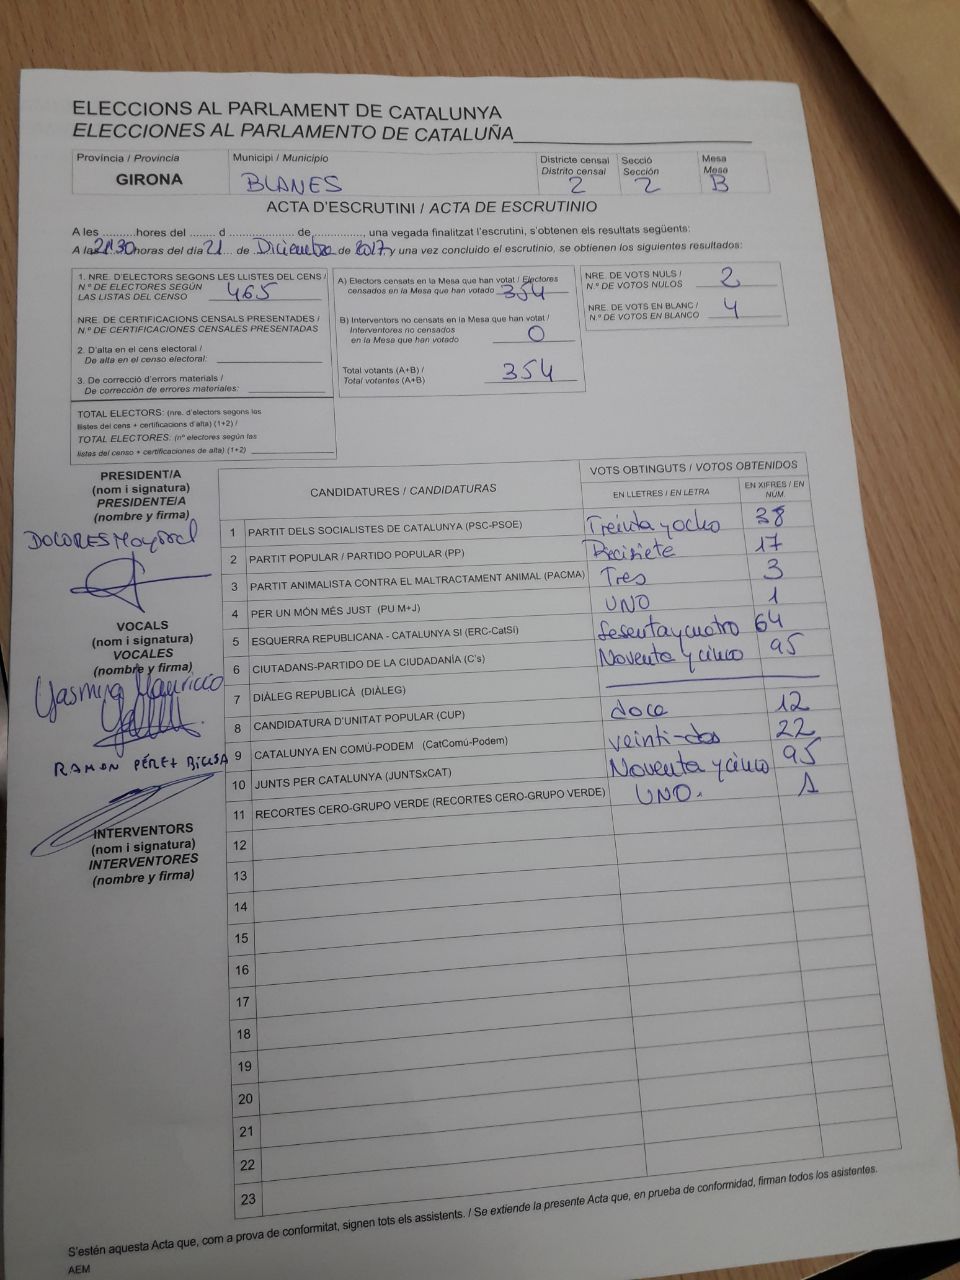 ELECCIONS AL PARLAMENT DE CATALUNYA
ELECCIONES AL PARLAMENTO DE CATALUÑA
Provincia / Provincia
GIRONA
Municipi / Municipio
BLANES
Districte censal
Distrito censal
2
Secció
Sección
2
Mesa
Mesa
B
ACTA D'ESCRUTINI / ACTA DE ESCRUTINIO
A les ..........hores del ........ d ........................ de................, una vegada finalitzat l'escrutini, s'obtenen els resultats següents:
A las 21:30 horas del día 21 ... de Diciembre de 2017 y una vez concluido el escrutinio, se obtienen los siguientes resultados:
1. NRE. D'ELECTORS SEGONS LES LLISTES DEL CENS /
N.º DE ELECTORES SEGÚN
LAS LISTAS DEL CENSO 465
NRE. DE CERTIFICACIONS CENSALS PRESENTADES /
N.º DE CERTIFICACIONES CENSALES PRESENTADAS
2. D'alta en el cens electoral /
De alta en el censo electoral:
3. De correcció d'errors materials /
De corrección de errores materiales:
TOTAL ELECTORS: (nre. d'electors segons les
llistes del cens + certificacions d'alta) (1+2) /
TOTAL ELECTORES: (nº electores según las
listas del censo + certificaciones de alta) (1+2)
A) Electors censats en la Mesa que han votat / Electores
censados en la Mesa que han votado 354
B) Interventors no censats en la Mesa que han votat /
Interventores no censados
en la Mesa que han votado 0
Total votants (A+B) /
Total votantes (A+B) 354
NRE. DE VOTS NULS /
N.º DE VOTOS NULOS 2
NRE. DE VOTS EN BLANC /
N.º DE VOTOS EN BLANCO 4
PRESIDENT/A
(nom i signatura)
PRESIDENTE/A
(nombre y firma)
DOLORES Mayoral
VOCALS
(nom i signatura)
VOCALES
(nombre y firma)
Yasmina Mauricco
RAMON PÉREZ
INTERVENTORS
(nom i signatura)
INTERVENTORES
(nombre y firma)
CANDIDATURES / CANDIDATURAS
VOTS OBTINGUTS / VOTOS OBTENIDOS
EN LLETRES / EN LETRA
EN XIFRES / EN NÚM.
1 PARTIT DELS SOCIALISTES DE CATALUNYA (PSC-PSOE) Treinta y ocho 38
2 PARTIT POPULAR / PARTIDO POPULAR (PP) Diecisiete 17
3 PARTIT ANIMALISTA CONTRA EL MALTRACTAMENT ANIMAL (PACMA) Tres 3
4 PER UN MÓN MÉS JUST (PU M+J) UNO 1
5 ESQUERRA REPUBLICANA - CATALUNYA SI (ERC-CatSí) Sesenta y cuatro 64
6 CIUTADANS-PARTIDO DE LA CIUDADANÍA (C's) Noventa y cinco 95
7 DIÀLEG REPUBLICÀ (DIÀLEG)
8 CANDIDATURA D'UNITAT POPULAR (CUP) doce 12
9 CATALUNYA EN COMÚ-PODEM (CatComú-Podem) veinti-dos 22
10 JUNTS PER CATALUNYA (JUNTSxCAT) Noventa y cinco 95
11 RECORTES CERO-GRUPO VERDE (RECORTES CERO-GRUPO VERDE) UNO. 1
12
13
14
15
16
17
18
19
20
21
22
23
S'estén aquesta Acta que, com a prova de conformitat, signen tots els assistents. / Se extiende la presente Acta que, en prueba de conformidad, firman todos los asistentes.
AEM